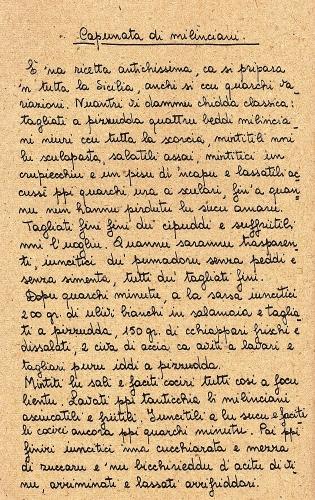 Capunata di milinciani.
È 'na ricetta antichissima, ca si pripara
'n tutta la Sicilia, anchi si ccu quarchi va-
riazioni. Nuantri vi dammu chidda classica:
tagliati a pizzudda quattru beddi milincia-
ni niuri ccu tutta la scorcia, mintitili nni
lu sculapasta, salatili assai, mintitici un
cupiecchiu e un pisu di 'ncapu e lassatili ac-
cussì ppi quarchi ura a sculari, fin'a quan-
nu nun hannu pirdutu lu sucu amaru.
Tagliati fini fini du' cipuddi e suffriitili
nni l'uogliu. Quannu sarannu trasparen-
ti, iuncitici du' pumadoru senza peddi e
senza simenta, tutti du' tagliati fini.
Dopu quarchi minutu, a la sarsa iuncitici
200 gr. di ulivi bianchi in salamoia e taglia-
ti a pizzudda, 150 gr. di cchiappari frischi e
dissalati, 2 civa di accia ca aviti a lavari e
tagliari puru iddi a pizzudda.
Mintiti lu sali e faciti cociri tutti così a focu
lientu. Lavati ppi tanticchia li milinciani
asciucatili e friitili. Iuncitili a lu sucu e faciti-
li cociri ancora ppi quarchi minutu. Poi ppi
finiri iuncitici una cucchiarata e menza
di zuccaru e 'nu bicchirieddu d'acitu di vi-
nu, arriminati e lassati arrifriddari.